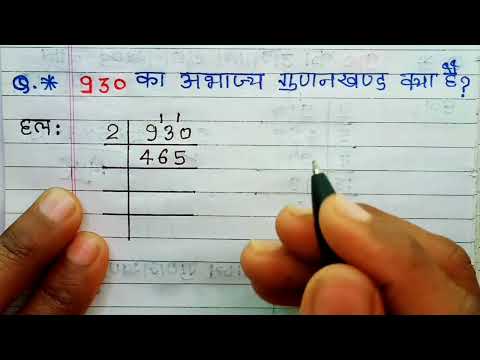 Q.* 930 का अभाज्य गुणनखण्ड क्या है?
हल: 2 | 9 ¹3 ¹0
465